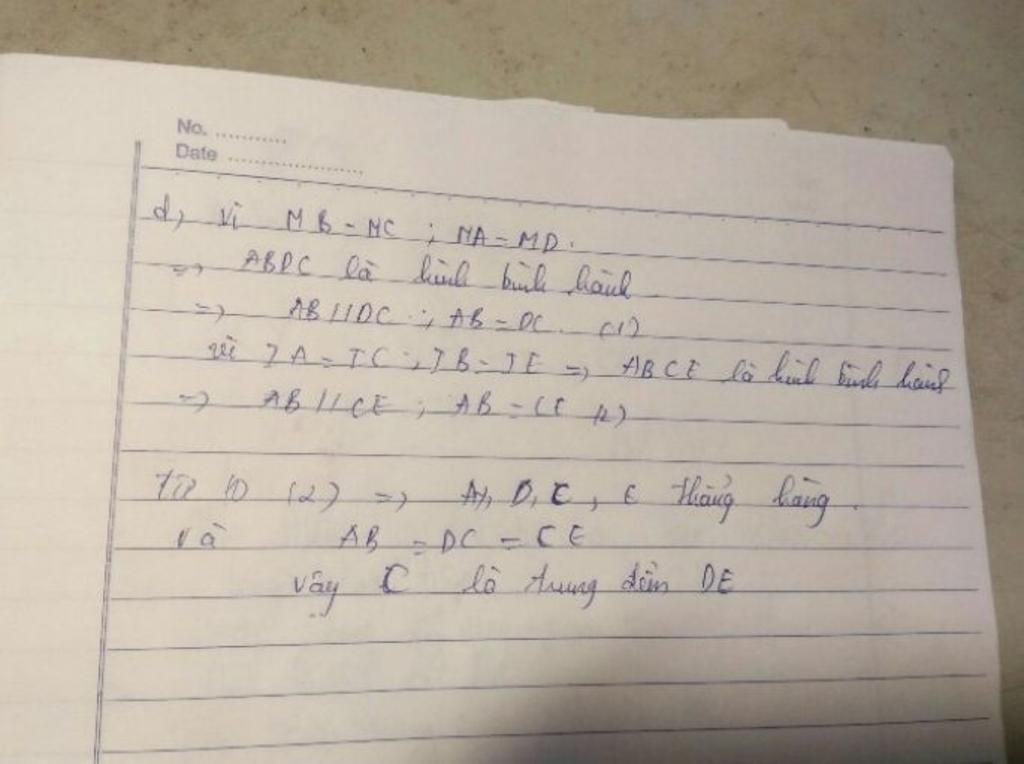 No. ............
Date ......................
d, Vì MB = MC ; MA = MD.
=> ABDC là hình bình hành
=> AB // DC ; AB = DC. (1)
vì IA = IC ; IB = IE => ABCE là hình bình hành
=> AB // CE ; AB = CE (2)
Từ (1) (2) => D, C, E thẳng hàng.
và AB = DC = CE
vậy C là trung điểm DE